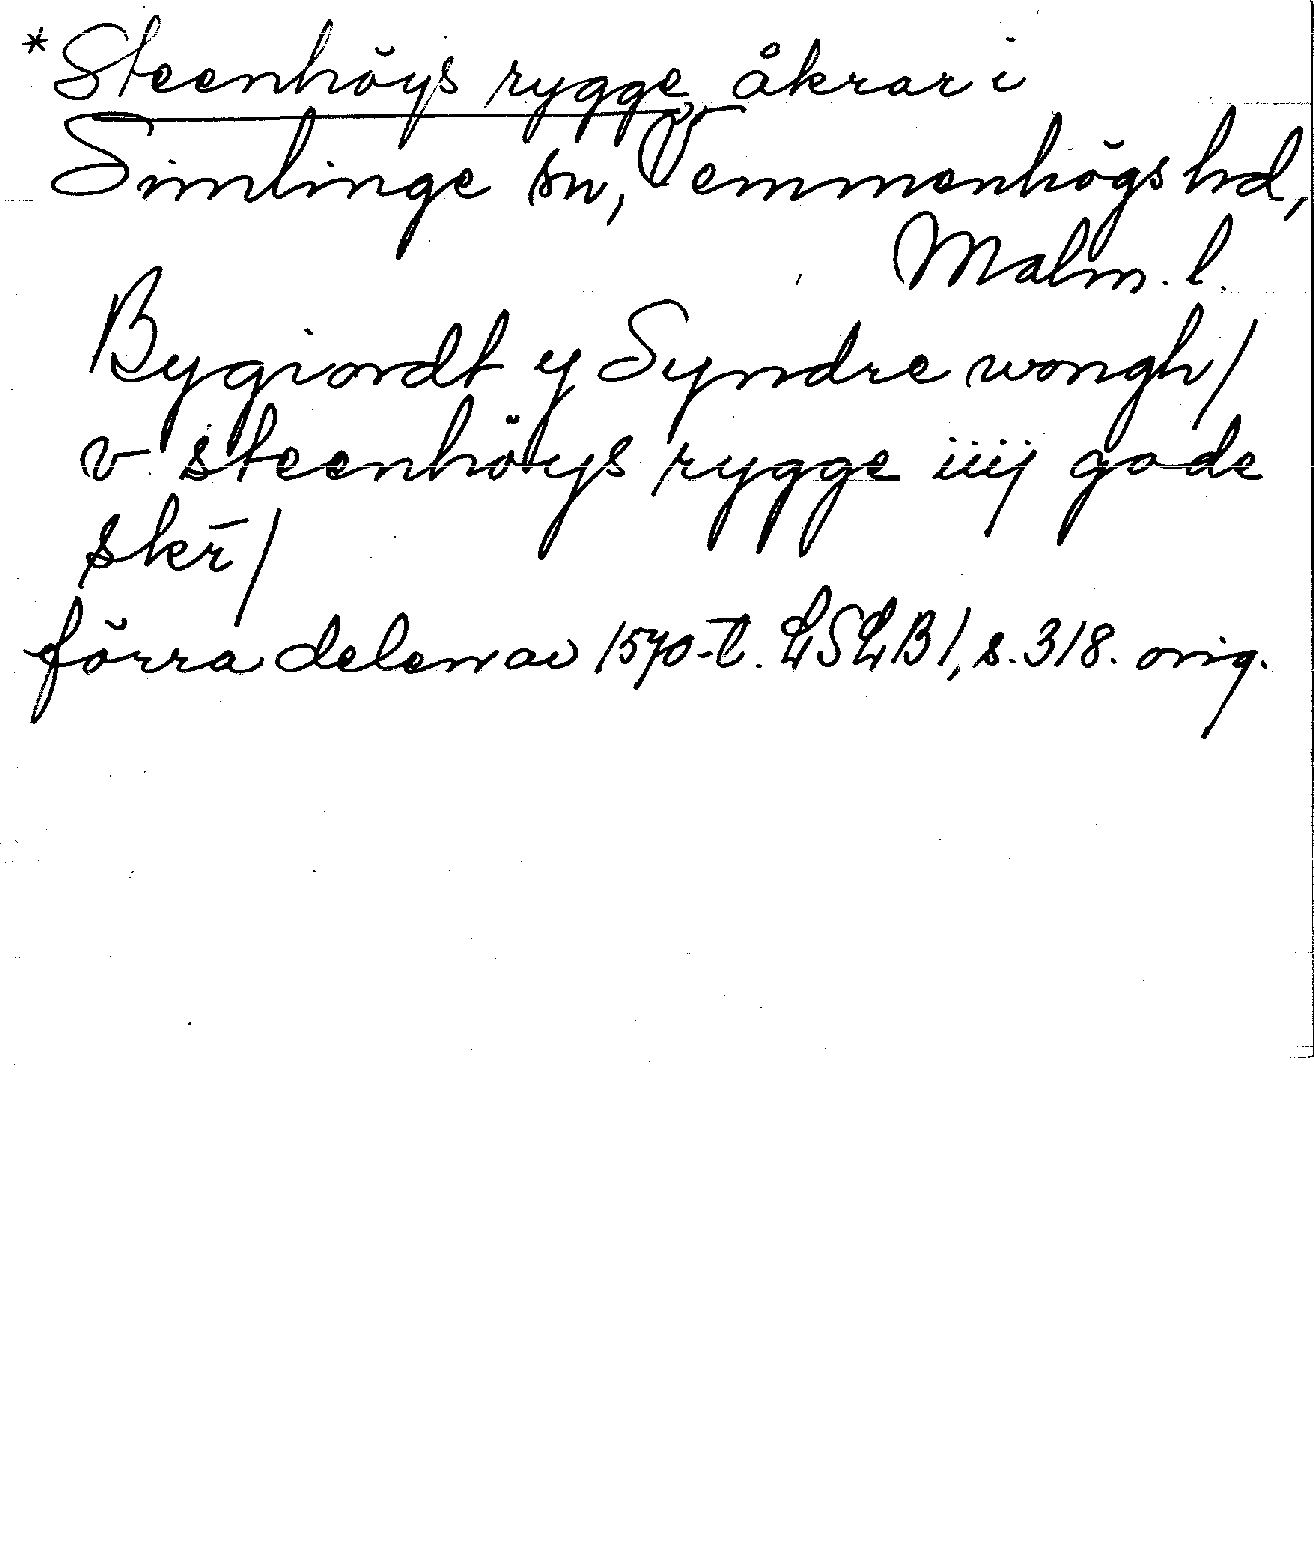 *Steenhöys rygge, åkrar i
Simlinge sn, Vemmenhögs hd,
Malm. l.
Bygiordt y Syndre wongh/
v steenhöys rygge iiij gode
skr̄/
förra delen av 1570-t. LSLB 1, s. 318. orig.